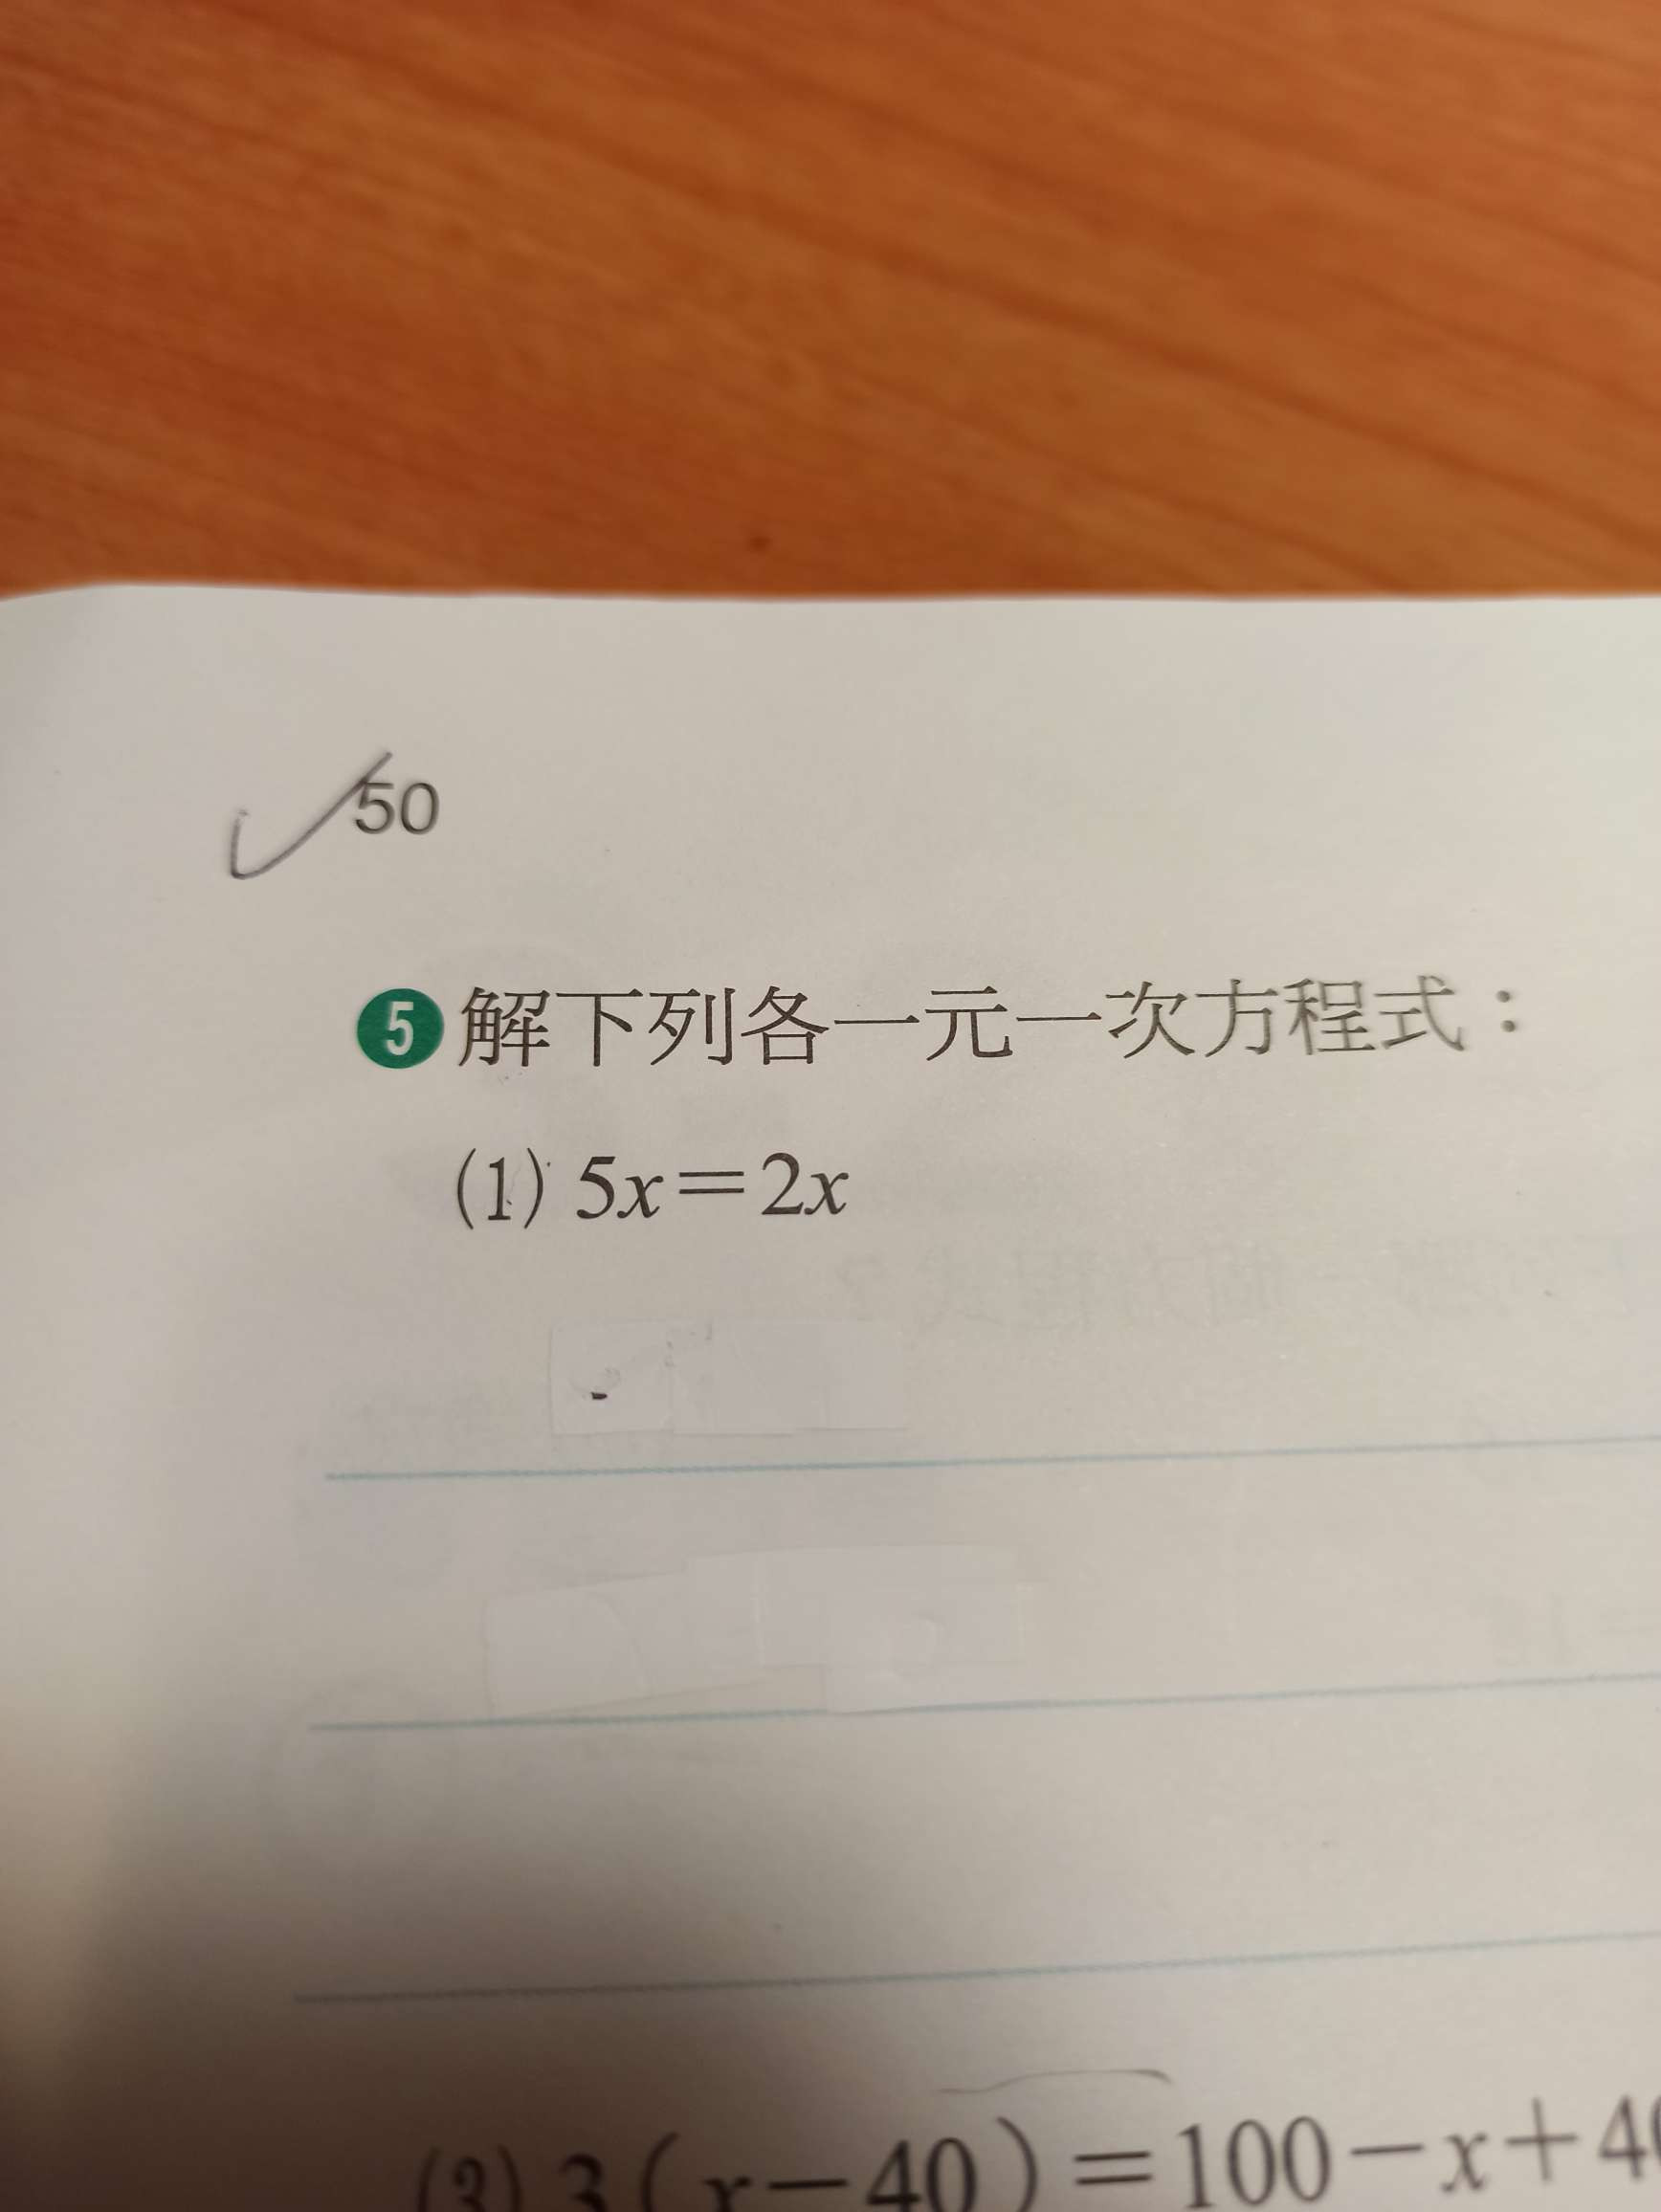 50
5 解下列各一元一次方程式：
(1) 5x＝2x
(3) 3(x－40)＝100－x＋40